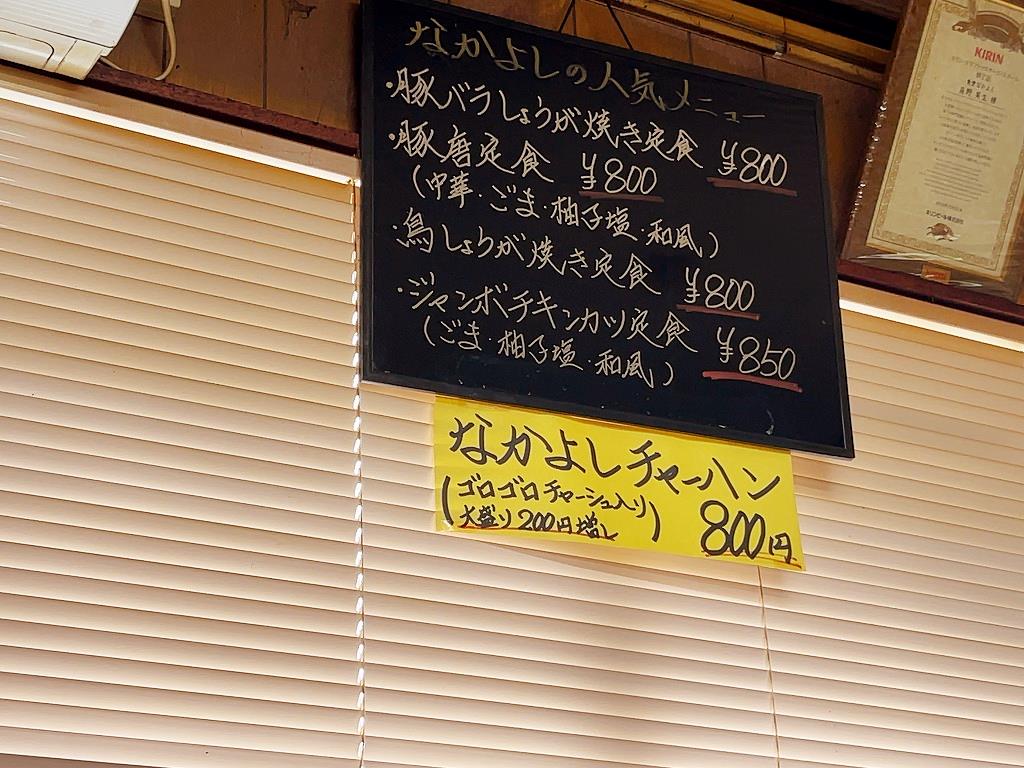 なかよしの人気メニュー
・豚バラしょうが焼き定食 ¥800
・豚唐定食 ¥800
(中華・ごま・柚子塩・和風)
・鳥しょうが焼き定食 ¥800
・ジャンボチキンカツ定食 ¥850
(ごま・柚子塩・和風)
なかよしチャーハン
(ゴロゴロチャーシュー入り
大盛り200円増し)
800円
KIRIN
キリンビール株式会社